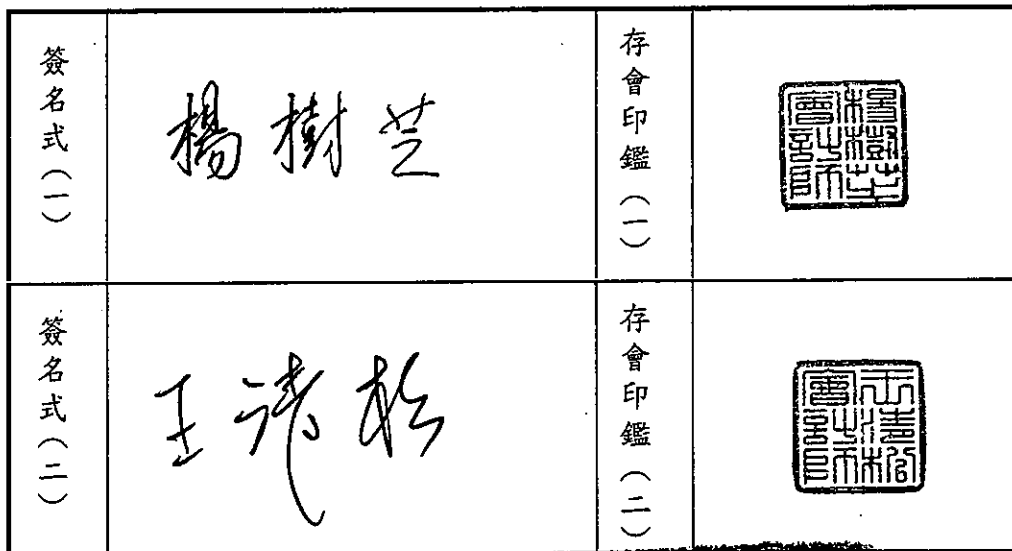 簽名式（一）
楊樹芝
存會印鑑（一）
楊樹芝
會計師
簽名式（二）
王清松
存會印鑑（二）
王清松
會計師